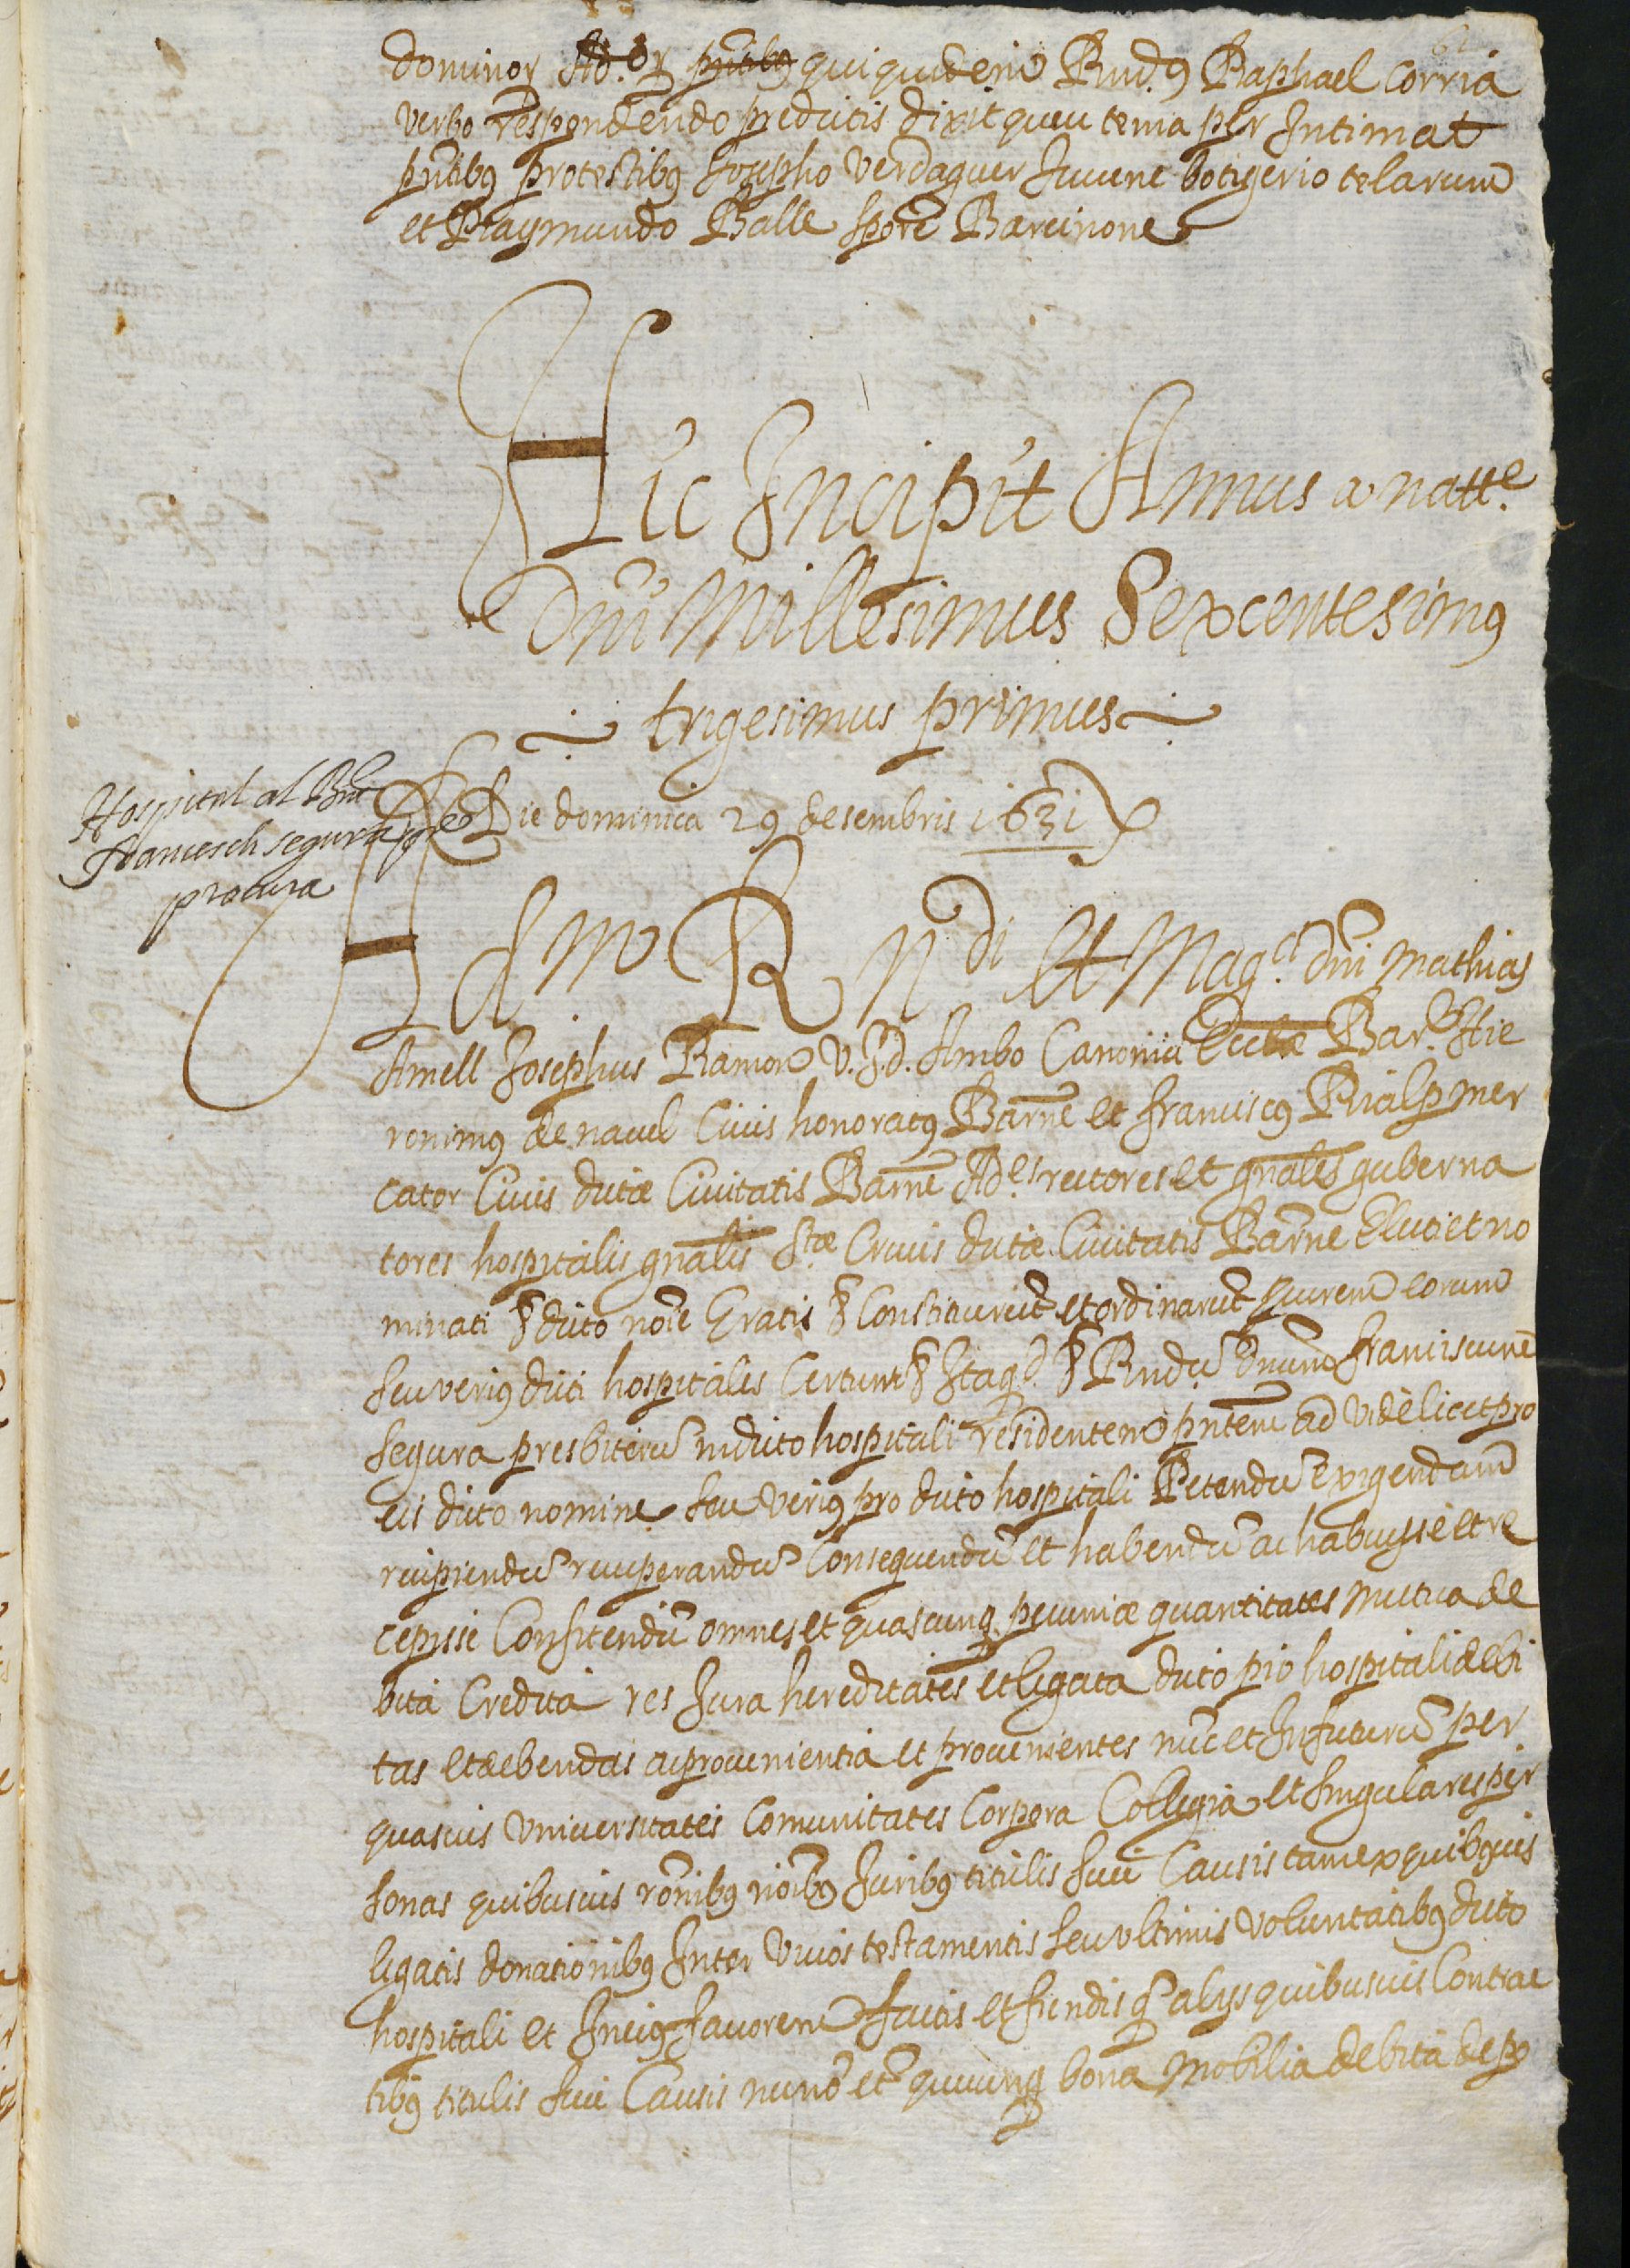 dominoꝝ Ad.oꝝ pntibꝯ qui quidem Rnd.ꝯ Raphael Corria
verbo respondendo predictis dixit que u tenia per Intimat
pntibꝯ pro testibꝯ Josepho Verdaguer Juvene botigerio telarum
et Raymundo Balle sꝑore Barcinone
Hic Incipit Annus a natt.e
Dni Millesimus Sexcentesimꝯ
trigesimus primus
Hospital al Rnt
Francesch segura pre
procura
Die dominica 29 desembris 1631
Adm Rndi et Mag.ci dni Mathias
Amell Josephus Ramon V.J.d. Ambo Canonici Ecclæ Bar.e Hie
ronimꝯ de navel Civis honoratꝯ Barne et franciscꝯ Rialp mer
cator Civis dictæ Civitatis Barne Ad.es rectores et gnales guberna
tores hospitalis gnalis S.tæ Crucis dictæ Civitatis Barne Electi et no
minati ꝑ dicto noie Gratis ꝑ Constituerut et ordinarut ꝓcurem eorum
seu verius dicti hospitalis Certum ꝑ Itaq.d ꝑ Rndũ dnum franciscum
segura presbiterũ in dicto hospitali residentem pntem ad videlicet pro
eis dicto nomine seu veriꝯ pro dicto hospitali Petendũ Exigendum
recipiendũ recuperandũ Consequendũ et habendũ ac habuysse et re
cepisse Confitendũ omnes et quascunq. pecuniæ quantitates mutua de
bita Credita res Jura hereditates et legata dicto pio hospitali debi
tas et debendas ac provenientia et provenientes nuc et In futurũ per
quasvis Universitates Comunitates Corpora Collegia et singulares per
sonas quibusvis ronibꝯ noibꝯ Juribꝯ titulis sive Causis tam ex quibꝯvis
legatis donationibꝯ Inter Vivos testamentis seu ultimis Voluntatibꝯ dicto
hospitali et In eiꝯ favorem factis et fiendis q alys quibusvis Contrac
tibꝯ titulis sive Causis nunc et quecunq bona Mobilia debita depo